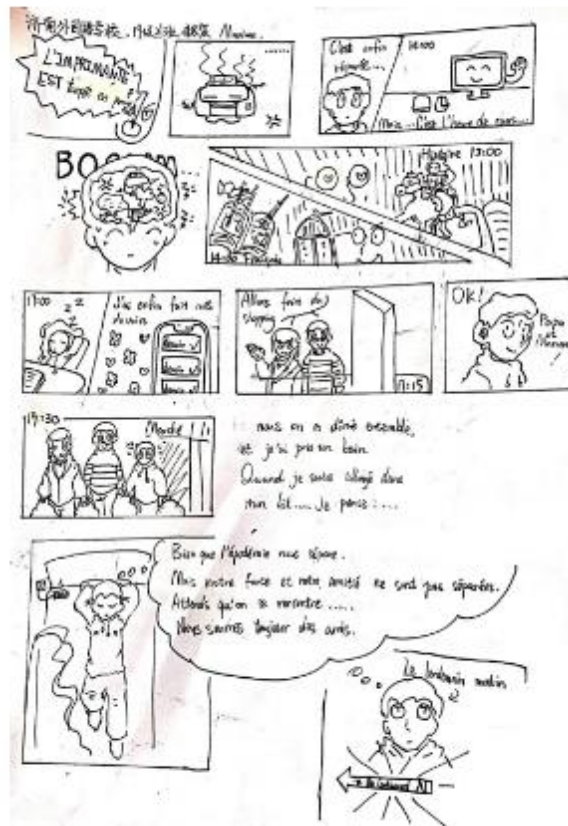 济南外国语学校
Maxime
L'IMPRIMANTE
EST
en panne
......
C'est enfin
réparée....
14:00
Mais... C'est l'heure de cours....
BOOUM
13:00
14:00 Français
17:00
zzz
J'ai enfin fait mes
devoirs
Allons faire du
shopping
17:15
OK!
Papa
et
Maman
19:30
Marché
nous on a dîné ensemble,
et j'ai pris un bain
Quand je suis allongé dans
mon lit.... Je pense:....
Bien que l'épidémie nous sépare.
Mais notre force et notre amitié ne sont pas séparées.
Attends qu'on se rencontre .....
Nous sommes toujours des amis.
Le lendemain matin